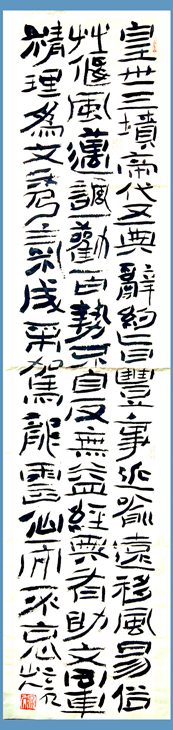 皇世三墳帝代五典辭約旨豐事近喻遠移風易俗
艸偃風邁諷一勸百勢不自反無益經典有助文章
精理為文秀气成采駕龍靈仙而不